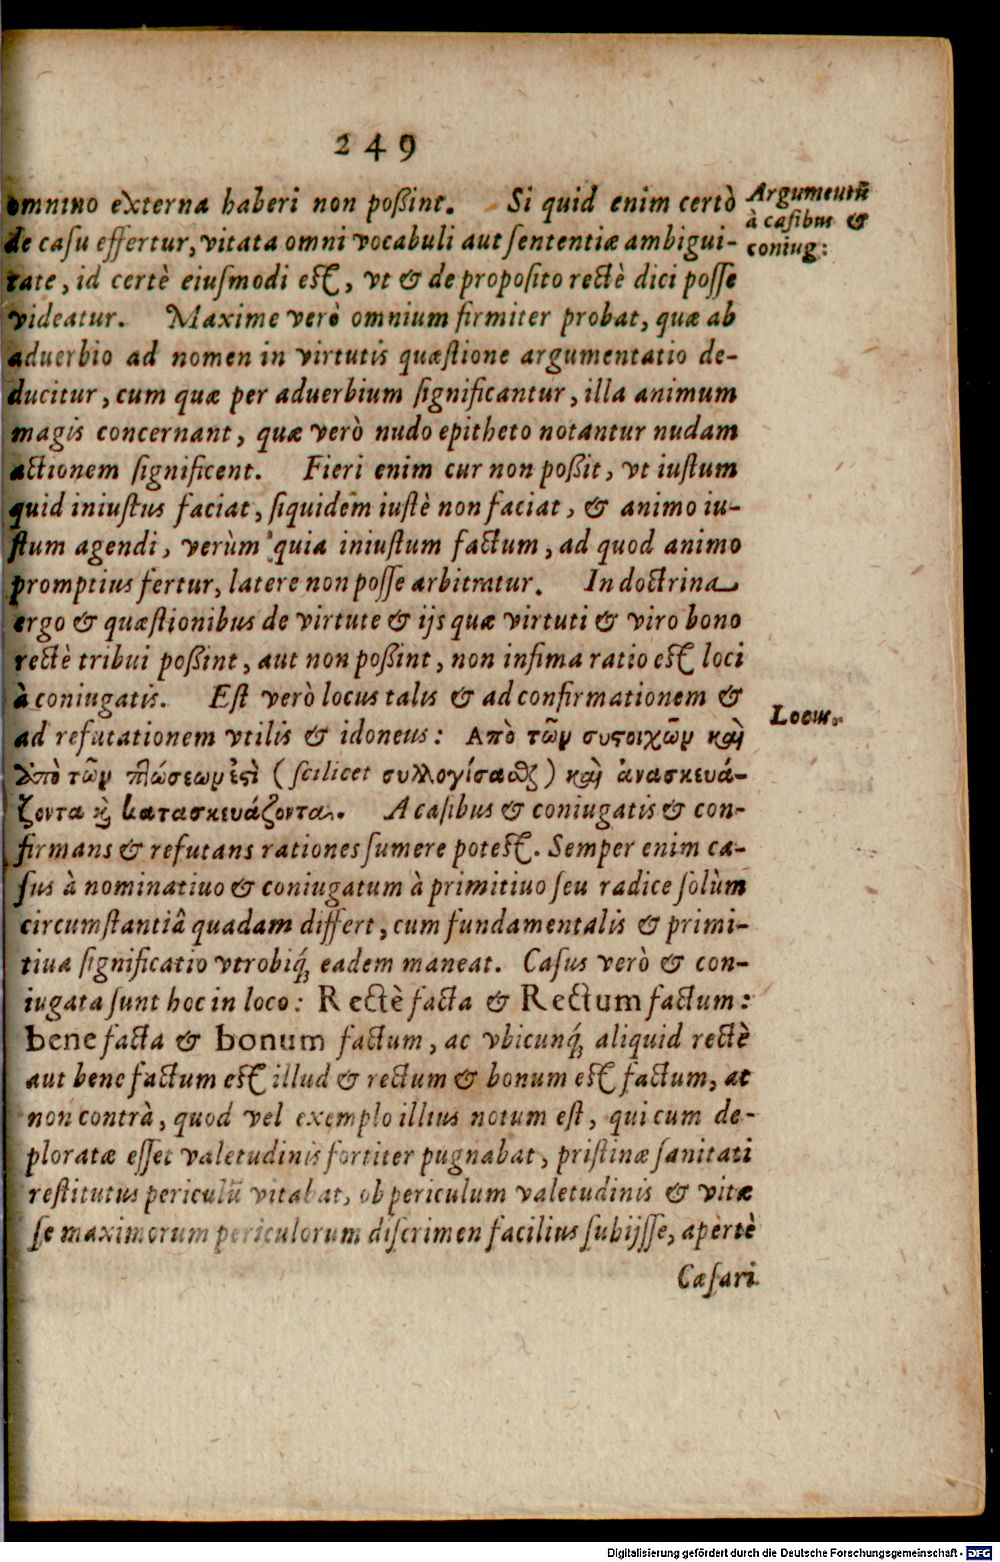 249
omnino externa haberi non poßint. Si quid enim certò
de casu effertur, vitata omni vocabuli aut sententiæ ambigui-
tate, id certè eiusmodi est, vt & de proposito rectè dici posse
videatur. Maxime verò omnium firmiter probat, quæ ab
aduerbio ad nomen in virtutis quæstione argumentatio de-
ducitur, cum quæ per aduerbium significantur, illa animum
magis concernant, quæ verò nudo epitheto notantur nudam
actionem significent. Fieri enim cur non poßit, vt iustum
quid iniustus faciat, siquidem iustè non faciat, & animo iu-
stum agendi, verùm quia iniustum factum, ad quod animo
promptius fertur, latere non posse arbitratur. In doctrina
ergo & quæstionibus de virtute & ijs quæ virtuti & viro bono
rectè tribui poßint, aut non poßint, non infima ratio est loci
à coniugatis. Est verò locus talis & ad confirmationem &
ad refutationem vtilis & idoneus: Απὸ τῶν συστοιχῶν καὶ
ἀπὸ τῶν πτώσεων ἐστὶ (scilicet συλλογίσαθζ) καὶ ἀνασκευά-
ζοντα κὶ κατασκευάζοντα. A casibus & coniugatis & con-
firmans & refutans rationes sumere potest. Semper enim ca-
sus à nominatiuo & coniugatum à primitiuo seu radice solùm
circumstantiâ quadam differt, cum fundamentalis & primi-
tiua significatio vtrobiq́; eadem maneat. Casus verò & con-
iugata sunt hoc in loco: Rectè facta & Rectum factum:
bene facta & bonum factum, ac vbicunq́; aliquid rectè
aut bene factum est illud & rectum & bonum est factum, at
non contrà, quod vel exemplo illius notum est, qui cum de-
ploratæ esset valetudinis fortiter pugnabat, pristinæ sanitati
restitutus periculũ vitabat, ob periculum valetudinis & vitæ
se maximorum periculorum discrimen facilius subijsse, apertè
Cæsari
Argumentũ
à casibus &
coniug:
Locus.
Digitalisierung gefördert durch die Deutsche Forschungsgemeinschaft - DFG